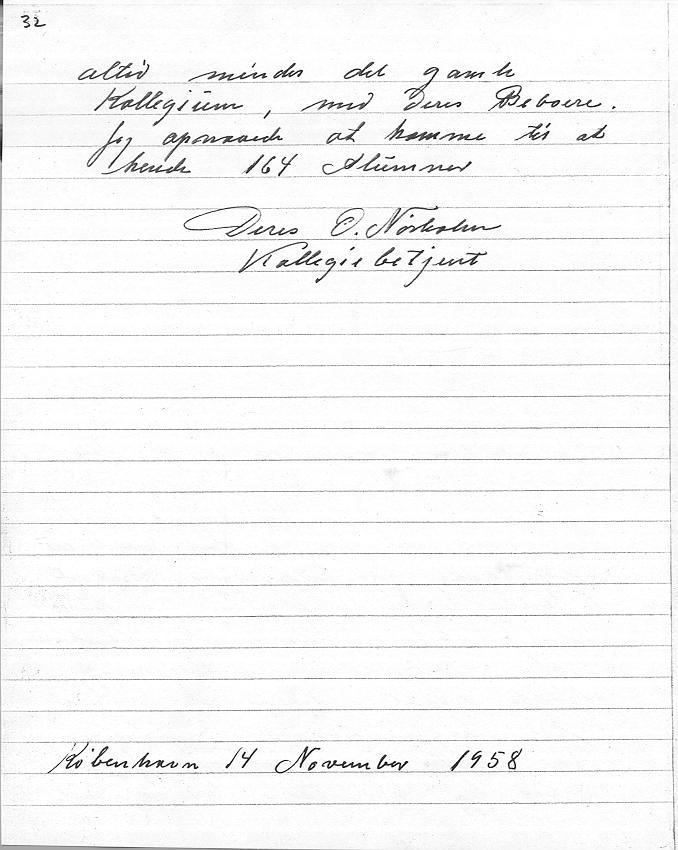 32
altid mindes det gamle
Kollegium, med Deres Beboere.
Jeg opnaaede at komme til at
kende 164 Alumner
Deres O. Nørholm
Kollegiebetjent
København 14 November 1958